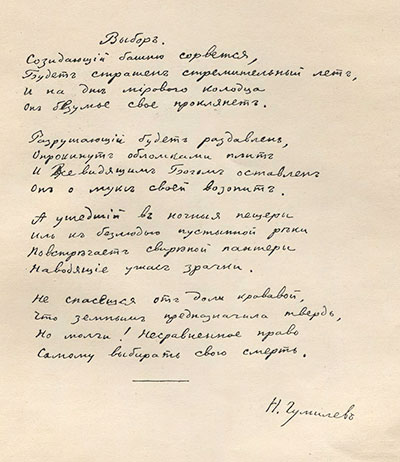 Выборъ.
Созидающій башню сорвется,
Будетъ страшенъ стремительный летъ,
И на днѣ мірового колодца
Онъ безумье свое проклянетъ.
Разрушающій будетъ раздавленъ,
Опрокинутъ обломками плитъ
И Всевидящимъ Богомъ оставленъ
Онъ о мукѣ своей возопитъ.
А ушедшій въ ночныя пещеры
Иль къ безлюдью пустынной рѣки
Повстрѣчаетъ свирѣпой пантеры
Наводящіе ужасъ зрачки.
Не спасешься отъ доли кровавой,
Что земнымъ предназначила твердь,
Но молчи! Несравненное право
Самому выбирать свою смерть.
Н. Гумилевъ